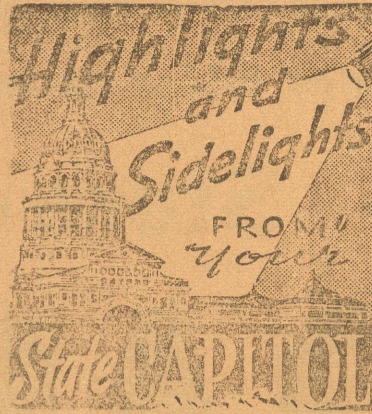 Highlights
and
Sidelights
FROM
Your
State CAPITOL